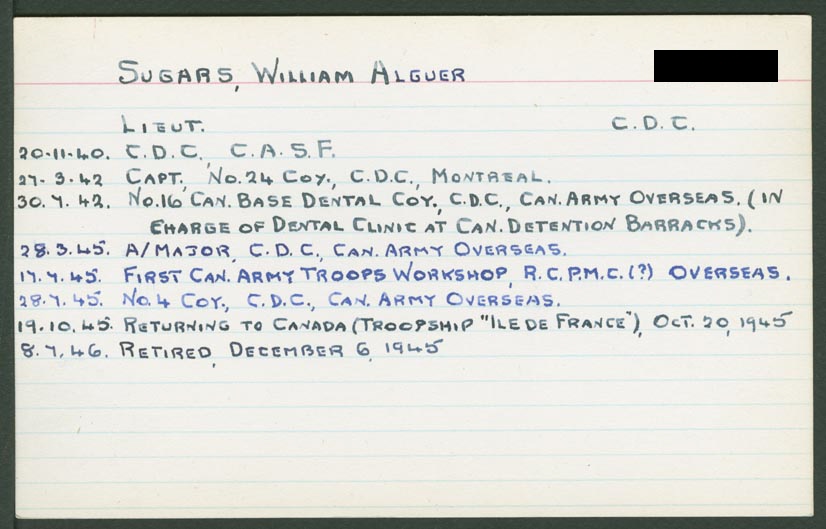 SUGARS, WILLIAM ALGUER
LIEUT. C.D.C.
20.11.40. C.D.C., C.A.S.F.
27.3.42 CAPT., No.24 COY., C.D.C., MONTREAL.
30.7.42. No.16 CAN. BASE DENTAL COY., C.D.C., CAN. ARMY OVERSEAS. (IN
CHARGE OF DENTAL CLINIC AT CAN. DETENTION BARRACKS).
28.3.45. A/MAJOR, C.D.C., CAN. ARMY OVERSEAS.
17.7.45. FIRST CAN. ARMY TROOPS WORKSHOP, R.C.P.M.C.(?) OVERSEAS.
28.7.45. No.4 COY., C.D.C., CAN. ARMY OVERSEAS.
19.10.45. RETURNING TO CANADA (TROOPSHIP "ILE DE FRANCE"), OCT. 20, 1945
8.7.46. RETIRED, DECEMBER 6, 1945